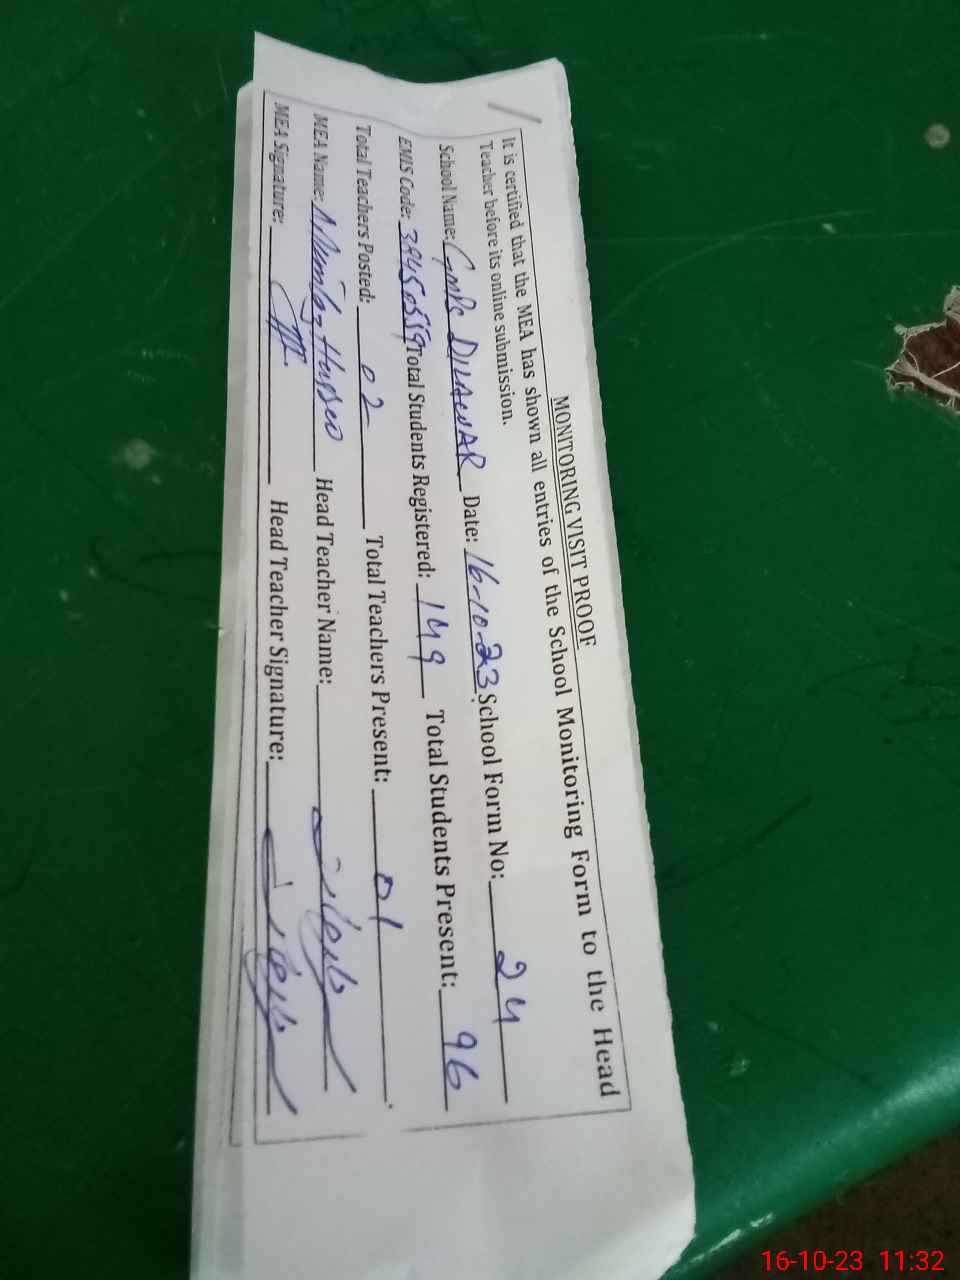 MONITORING VISIT PROOF
It is certified that the MEA has shown all entries of the School Monitoring Form to the Head
Teacher before its online submission.
School Name: GMPS DILAWAR Date: 16-10-23 School Form No: 24
EMIS Code: Total Students Registered: 149 Total Students Present: 96
Total Teachers Posted: 02 Total Teachers Present: 01
MEA Name: Mumtaz Hussain Head Teacher Name:
MEA Signature: Head Teacher Signature:
16-10-23 11:32